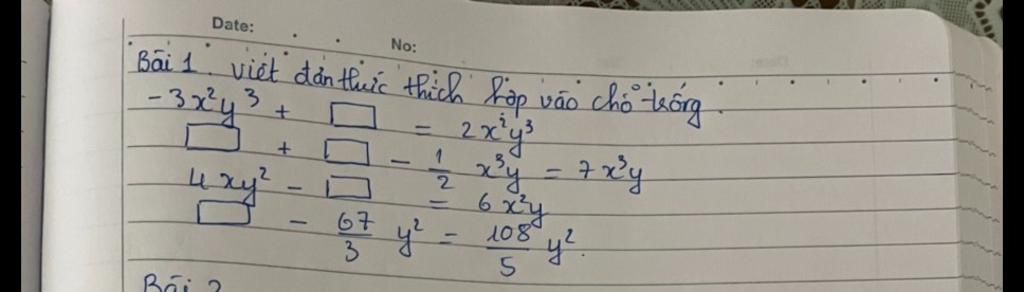 Date:
No:
Bài 1. Viết đơn thức thích hợp vào chỗ trống.
-3x²y³ + □ = 2x²y³
□ + □ - 1/2 x³y = 7x³y
4xy² - □ = 6x²y
□ - 67/3 y² = 108/5 y².
Bài 2